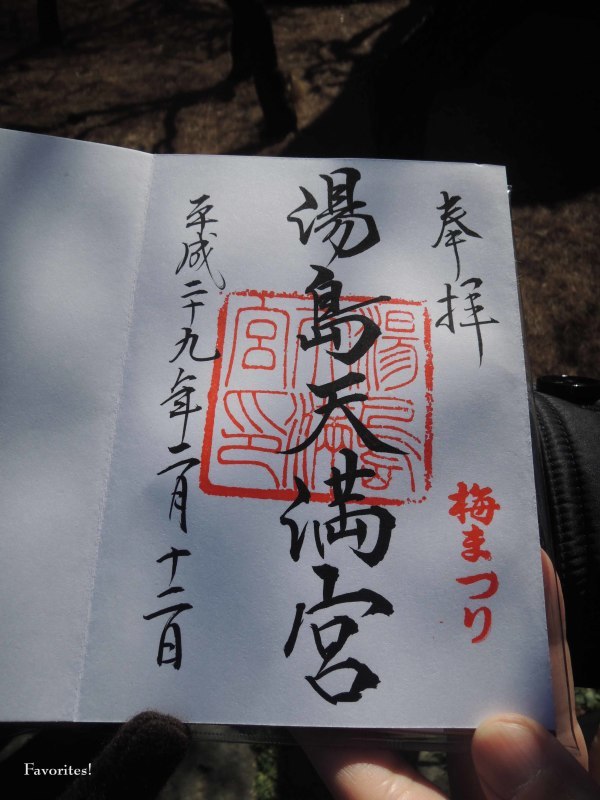 奉拝
梅まつり
湯島天満宮
湯島天満宮印
平成二十九年二月十二日
Favorites!